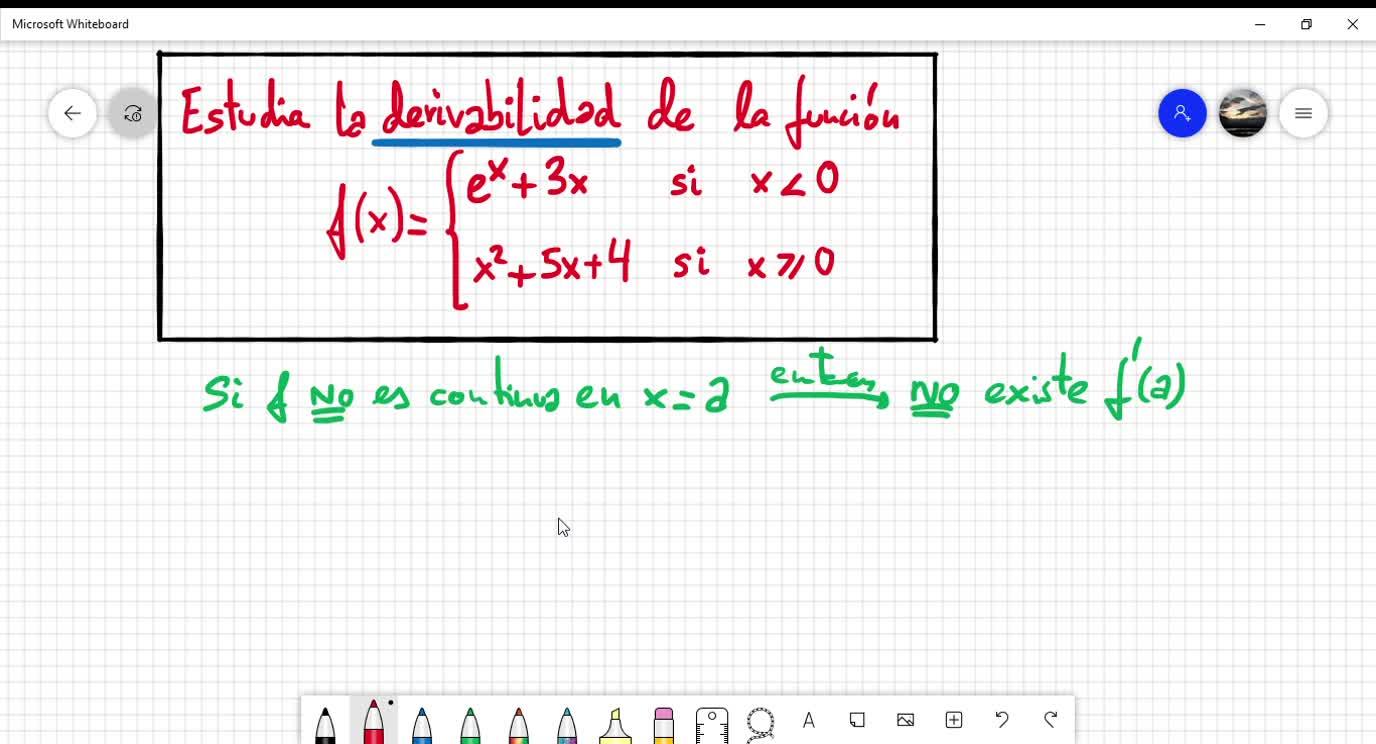 Microsoft Whiteboard
Estudia la derivabilidad de la función
f(x)= { e^x + 3x si x < 0
x² + 5x + 4 si x ⩾ 0
Si f NO es continua en x = a entonces NO existe f'(a)
A